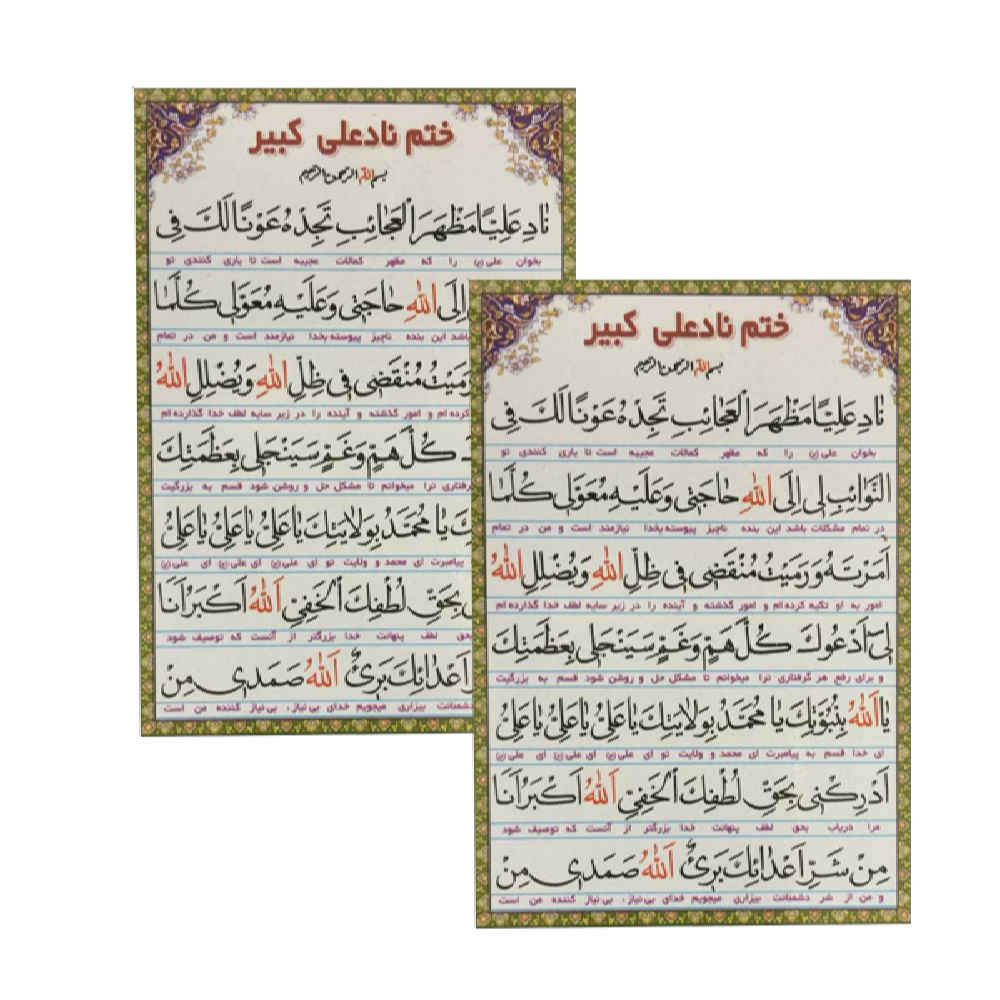 ختم نادعلی کبیر
بسم الله الرحمن الرحیم
نَادِ عَلِيًّا مَظْهَرَ الْعَجَائِبِ تَجِدْهُ عَوْنًا لَكَ فِي
بخوان علی (ع) را که مظهر کمالات عجیبه است تا یاری کنندی تو
إِلَى اللهِ حَاجَتِي وَعَلَيْهِ مُعَوَّلِي كُلَّمَا
باشد این بنده ناچیز پیوسته بخدا نیازمند است و من در تمام
رَمَيْتُ مُنْقَضِي فِي ظِلِّ اللهِ وَيُضْلِلِ اللهُ
کرده ام و امور گذشته و آینده را در زیر سایه لطف خدا گذارده ام
كُلَّ هَمٍّ وَغَمٍّ سَيَنْجَلِي بِعَظَمَتِكَ
گرفتاری ترا میخوانم تا مشکل حل و روشن شود قسم به بزرگیت
يَا مُحَمَّدُ بِوَلَايَتِكَ يَا عَلِيُّ يَا عَلِيُّ يَا عَلِيُّ
پیامبرت ای محمد و ولایت تو ای علی (ع) ای علی (ع) ای علی (ع)
بِحَقِّ لُطْفِكَ الْخَفِيِّ اَللهُ اَكْبَرُ اَنَا
بحق لطف پنهانت خدا بزرگتر از آنست که توصیف شود
اَعْدَائِكَ بَرِيءٌ اَللهُ صَمَدِي مِنْ
دشمنانت بیزاری میجویم خدای بی نیاز، بی نیاز کننده من است
ختم نادعلی کبیر
بسم الله الرحمن الرحیم
نَادِ عَلِيًّا مَظْهَرَ الْعَجَائِبِ تَجِدْهُ عَوْنًا لَكَ فِي
بخوان علی (ع) را که مظهر کمالات عجیبه است تا یاری کنندی تو
النَّوَائِبِ لِي إِلَى اللهِ حَاجَتِي وَعَلَيْهِ مُعَوَّلِي كُلَّمَا
در تمام مشکلات باشد این بنده ناچیز پیوسته بخدا نیازمند است و من در تمام
اَمَرْتَهُ وَرَمَيْتُ مُنْقَضِي فِي ظِلِّ اللهِ وَيُضْلِلِ اللهُ
امور به او تکیه کرده ام و امور گذشته و آینده را در زیر سایه لطف خدا گذارده ام
لِي اَدْعُوكَ كُلَّ هَمٍّ وَغَمٍّ سَيَنْجَلِي بِعَظَمَتِكَ
و برای رفع هر گرفتاری ترا میخوانم تا مشکل حل و روشن شود قسم به بزرگیت
يَا اَللهُ بِنُبُوَّتِكَ يَا مُحَمَّدُ بِوَلَايَتِكَ يَا عَلِيُّ يَا عَلِيُّ يَا عَلِيُّ
ای خدا قسم به پیامبرت ای محمد و ولایت تو ای علی (ع) ای علی (ع) ای علی (ع)
اَدْرِكْنِي بِحَقِّ لُطْفِكَ الْخَفِيِّ اَللهُ اَكْبَرُ اَنَا
مرا دریاب بحق لطف پنهانت خدا بزرگتر از آنست که توصیف شود
مِنْ شَرِّ اَعْدَائِكَ بَرِيءٌ اَللهُ صَمَدِي مِنْ
و من از شر دشمنانت بیزاری میجویم خدای بی نیاز، بی نیاز کننده من است